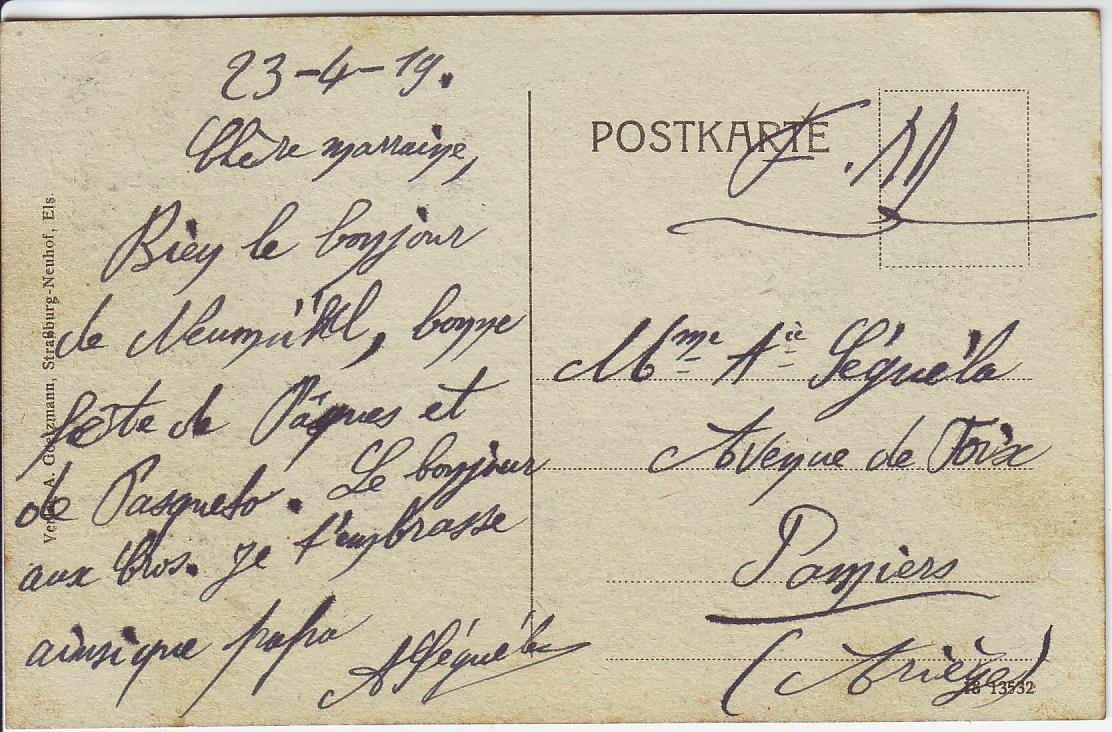 23-4-19.
Chère marraine,
Bien le bonjour
de Neumühl, bonne
fête de Pâques et
de Pasqueto. Le bonjour
aux Cros. je t'embrasse
ainsique papa
ASéguéla
Verlag A. Goetzmann, Straßburg-Neuhof, Els.
POSTKARTE
F.M
Mme Aiè Séguéla
Avenue de Foix
Pamiers
(Ariège)
18 13532